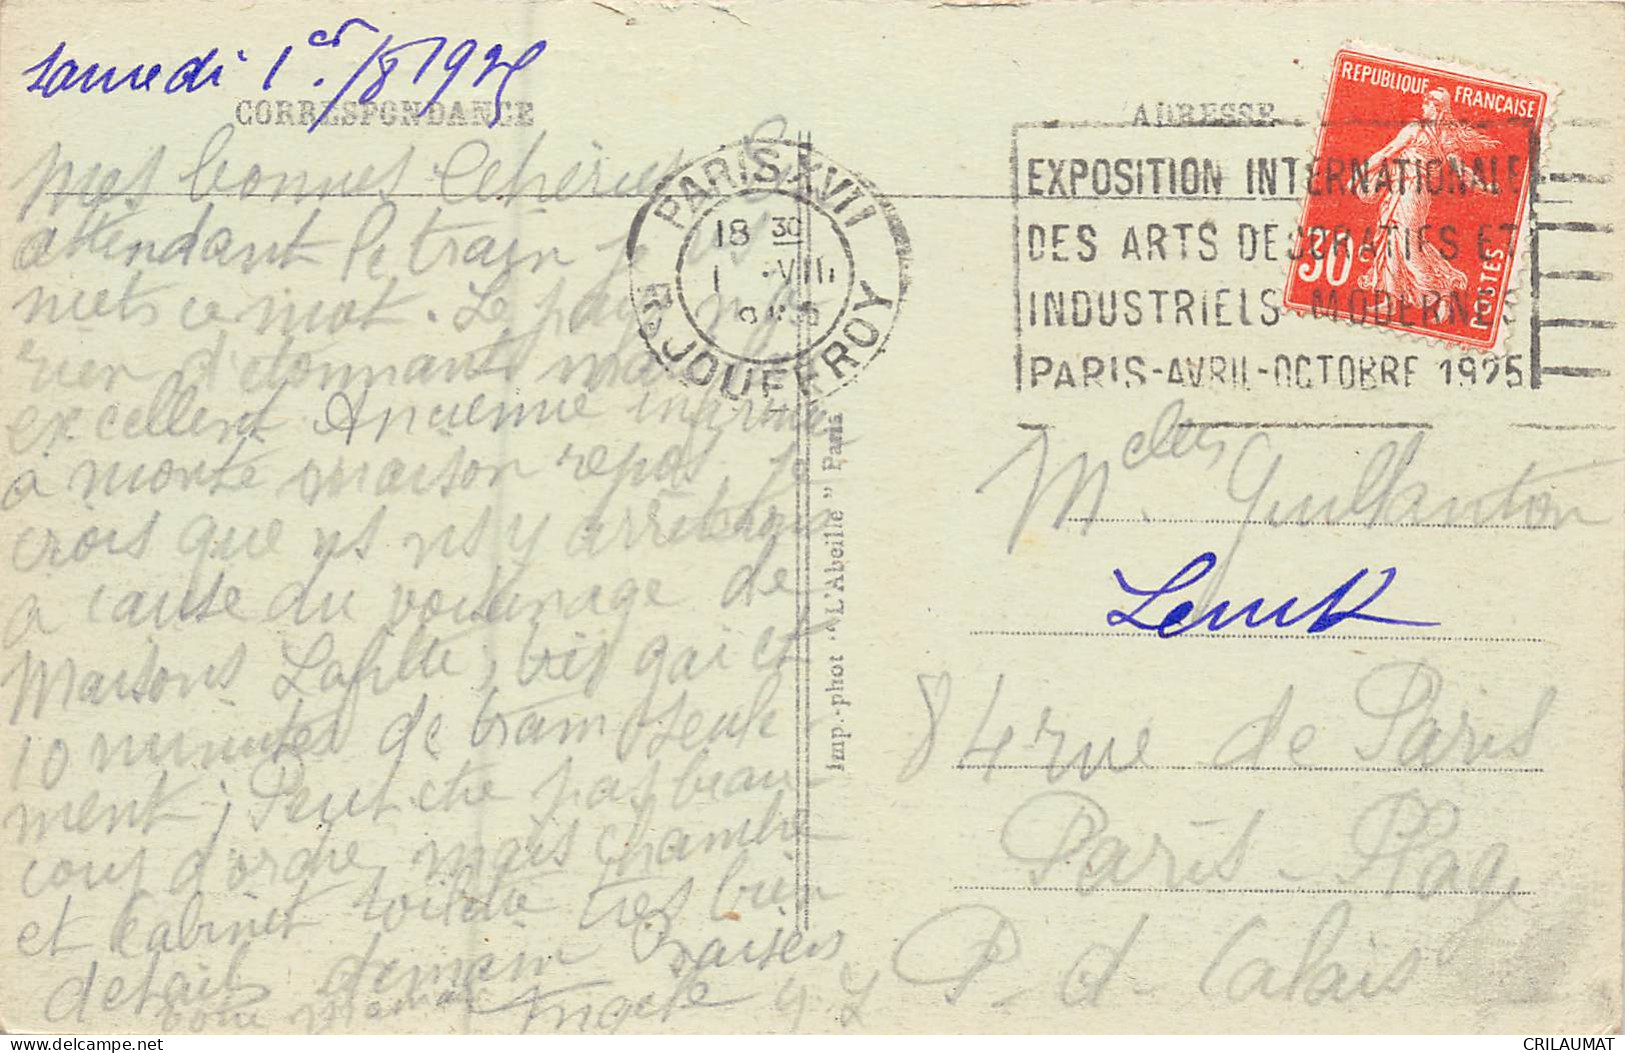 Samedi 1er/8 1925
CORRESPONDANCE
mes bonnes Chéries
attendant le train je vs
mets ce mot. Le pays n'a
rien d'étonnant mais
excellent Ancienne infirmière
a monté maison repos. Je
crois que ns ns y arrêterons
a cause du voisinage de
Maisons Laffitte, très gai et
10 minutes de tram seule
ment; Peut etre pas beau
coup d'ordre, mais chambre
et Cabinet toilette très bien
details demain Baisers
pour maman Angèle
PARIS XVII
18 30
1 VIII
R. JOUFFROY
Imp.-phot. "L'Abeille" Paris
ADRESSE
REPUBLIQUE FRANÇAISE
30
POSTES
EXPOSITION INTERNATIONALE
DES ARTS DECORATIFS ET
INDUSTRIELS MODERNES
PARIS-AVRIL-OCTOBRE 1925
Melles Guillanton
84 rue de Paris
Paris-Plage
P-d-Calais
CRILAUMAT